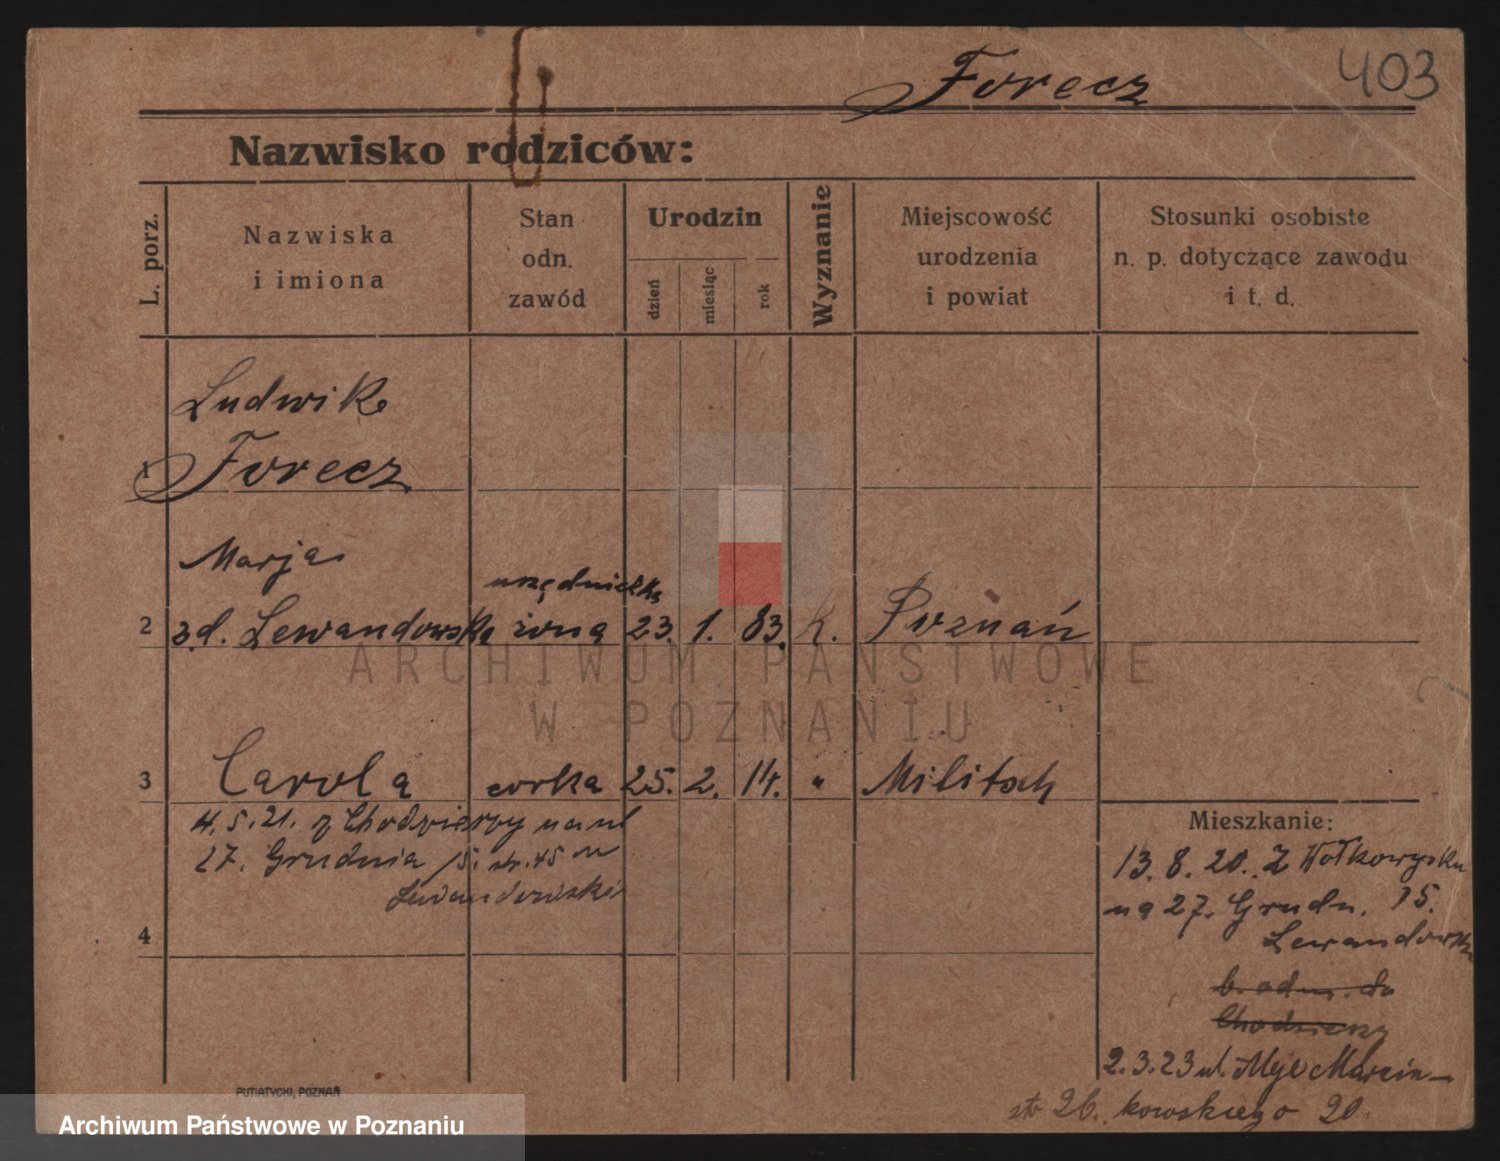 Forecz 403
Nazwisko rodziców:
L. porz.
Nazwiska
i imiona
Stan
odn.
zawód
Urodzin
dzień
miesiąc
rok
Wyznanie
Miejscowość
urodzenia
i powiat
Stosunki osobiste
n. p. dotyczące zawodu
i t. d.
Ludwik
1 Forecz
Marja urzędniczka
2 z d. Lewandowska żona 23. 1. 83. k. Poznań
ARCHIWUM PAŃSTWOWE
W POZNANIU
3 Carola corka 25. 2. 14. " Militsch
4. 5. 21. z Chodzieży na ul
27. Grudnia 15 str. 45 u
Lewandowski
4
Mieszkanie:
13. 8. 20. Z Wołkowysku
na 27. Grudn. 15.
Lewandowsk
b. adm. do
Chodzieży
2. 3. 23 ul. Marcin-
str 26. kowskiego 20
PUTIATYCKI, POZNAŃ
Archiwum Państwowe w Poznaniu